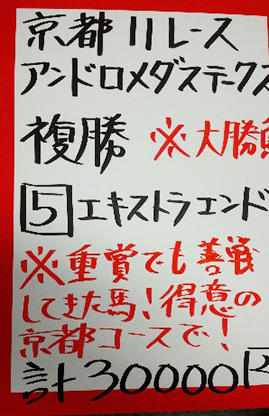 京都11レース
アンドロメダステークス
複勝 ※大勝負
5 エキストラエンド
※重賞でも善戦
してきた馬!得意の
京都コースで!
計30000円